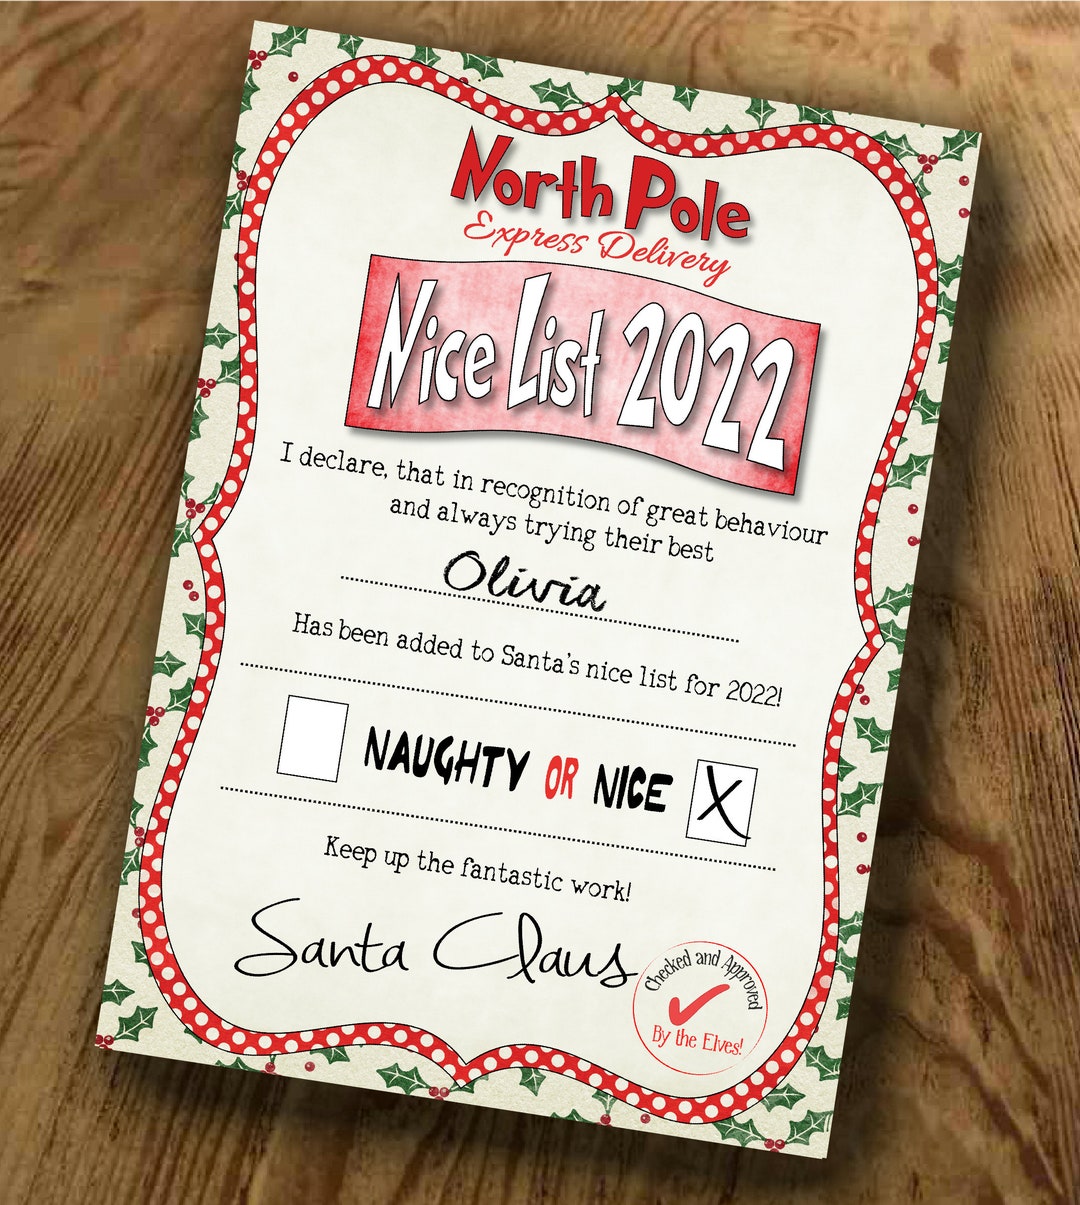 North Pole
Express Delivery
Nice List 2022
I declare, that in recognition of great behaviour
and always trying their best
Olivia
Has been added to Santa's nice list for 2022!
NAUGHTY OR NICE X
Keep up the fantastic work!
Santa Claus
Checked and Approved
By the Elves!